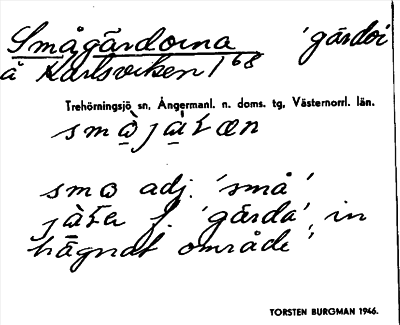 Smågärdorna 'gärdor
å Karlsviken 1⁶⁸
Trehörningsjö sn, Ångermanl. n. doms. tg, Västernorrl. län.
adj. 'små'
f. 'gärda', in
hägnat område'
TORSTEN BURGMAN 1946.